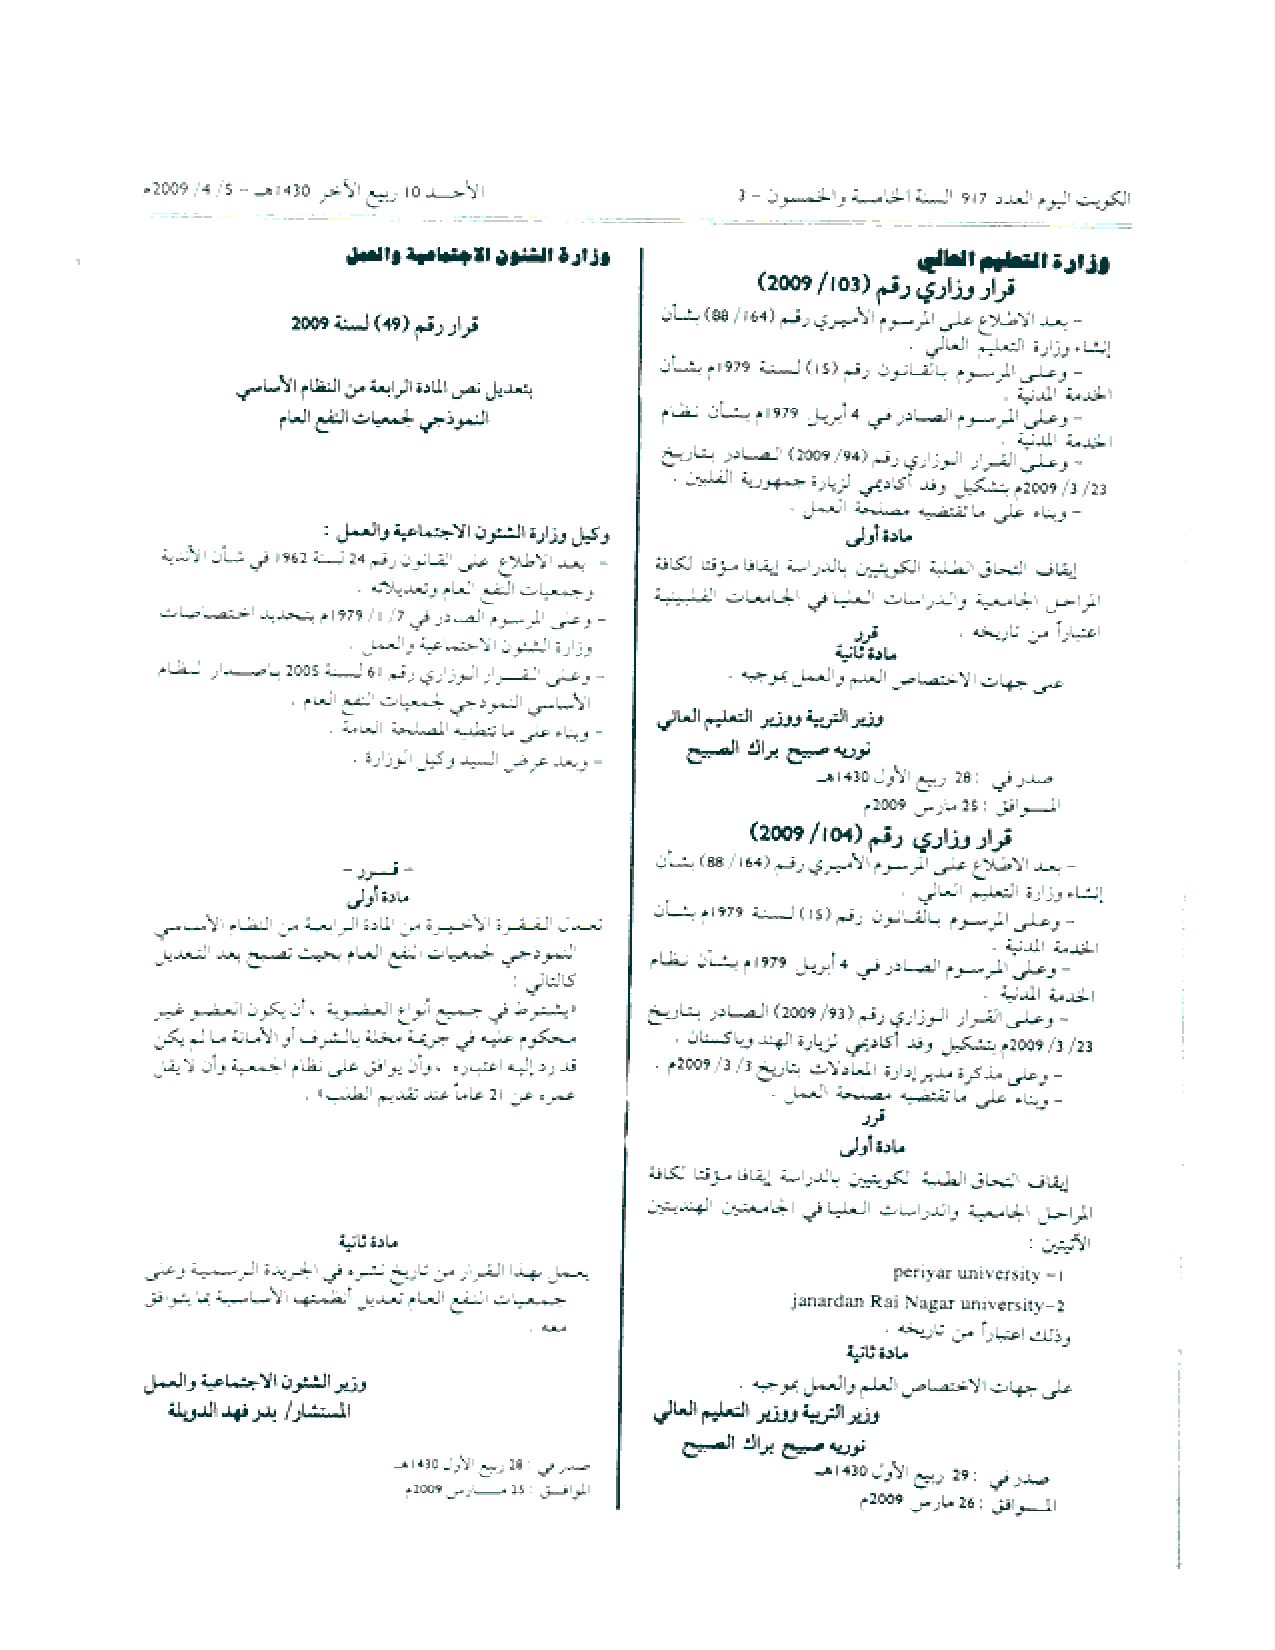 الكويت اليوم العدد 917 السنة الخامسة والخمسون - 3
الأحـــد 10 ربيع الآخر 1430هـ - 5/ 4/ 2009م
وزارة التعليم العالي
قرار وزاري رقم (103/ 2009)
- بعد الاطلاع على المرسوم الأميري رقم (164/ 88) بشأن
إنشاء وزارة التعليم العالي .
- وعلى المرسوم بالقانون رقم (15) لسنة 1979م بشأن
الخدمة المدنية .
- وعلى المرسوم الصادر في 4 أبريل 1979م بشأن نظام
الخدمة المدنية .
- وعلى القرار الوزاري رقم (94/ 2009) الصادر بتاريخ
23/ 3/ 2009م بتشكيل وفد أكاديمي لزيارة جمهورية الفلبين .
- وبناء على ما تقتضيه مصلحة العمل .
مادة أولى
إيقاف التحاق الطلبة الكويتيين بالدراسة إيقافا مؤقتا لكافة
المراحل الجامعية والدراسات العليا في الجامعات الفلبينية
اعتباراً من تاريخه .
قرر
مادة ثانية
على جهات الاختصاص العلم والعمل بموجبه .
وزير التربية ووزير التعليم العالي
نوريه صبيح براك الصبيح
صدر في : 28 ربيع الأول 1430هـ
المــوافق : 25 مارس 2009م
قرار وزاري رقم (104/ 2009)
- بعد الاطلاع على المرسوم الأميري رقم (164/ 88) بشأن
إنشاء وزارة التعليم العالي .
- وعلى المرسوم بالقانون رقم (15) لسنة 1979م بشأن
الخدمة المدنية .
- وعلى المرسوم الصادر في 4 أبريل 1979م بشأن نظام
الخدمة المدنية .
- وعلى القرار الوزاري رقم (93/ 2009) الصادر بتاريخ
23/ 3/ 2009م بتشكيل وفد أكاديمي لزيارة الهند وباكستان .
- وعلى مذكرة مدير إدارة المعادلات بتاريخ 3/ 3/ 2009م .
- وبناء على ما تقتضيه مصلحة العمل .
قرر
مادة أولى
إيقاف التحاق الطلبة لكويتيين بالدراسة إيقافا مؤقتا لكافة
المراحل الجامعية والدراسات العليا في الجامعتين الهنديتين
الآتيتين :
1- periyar university
2- janardan Rai Nagar university
وذلك اعتباراً من تاريخه .
مادة ثانية
على جهات الاختصاص العلم والعمل بموجبه .
وزير التربية ووزير التعليم العالي
نوريه صبيح براك الصبيح
صدر في : 29 ربيع الأول 1430هـ
المــوافق : 26 مارس 2009م
وزارة الشئون الاجتماعية والعمل
قرار رقم (49) لسنة 2009
بتعديل نص المادة الرابعة من النظام الأساسي
النموذجي لجمعيات النفع العام
وكيل وزارة الشئون الاجتماعية والعمل :
- بعد الاطلاع على القانون رقم 24 لسنة 1962 في شأن الأندية
وجمعيات النفع العام وتعديلاته .
- وعلى المرسوم الصادر في 7/ 1/ 1979م بتحديد اختصاصات
وزارة الشئون الاجتماعية والعمل .
- وعلى القرار الوزاري رقم 61 لسنة 2005 بإصدار نظام
الأساسي النموذجي لجمعيات النفع العام .
- وبناء على ما تتطلبه المصلحة العامة .
- وبعد عرض السيد وكيل الوزارة .
- قـــرر -
مادة أولى
تعدل الفقرة الأخيرة من المادة الرابعة من النظام الأساسي
النموذجي لجمعيات النفع العام بحيث تصبح بعد التعديل
كالتالي :
"يشترط في جميع أنواع العضوية ، أن يكون العضو غير
محكوم عليه في جريمة مخلة بالشرف أو الأمانة ما لم يكن
قد رد إليه اعتباره ، وأن يوافق على نظام الجمعية وأن لا يقل
عمره عن 21 عاماً عند تقديم الطلب" .
مادة ثانية
يعمل بهذا القرار من تاريخ نشره في الجريدة الرسمية وعلى
جمعيات النفع العام تعديل أنظمتها الأساسية بما يتوافق
معه .
وزير الشئون الاجتماعية والعمل
المستشار/ بدر فهد الدويلة
صدر في : 28 ربيع الأول 1430هـ
الموافق : 25 مـــارس 2009م